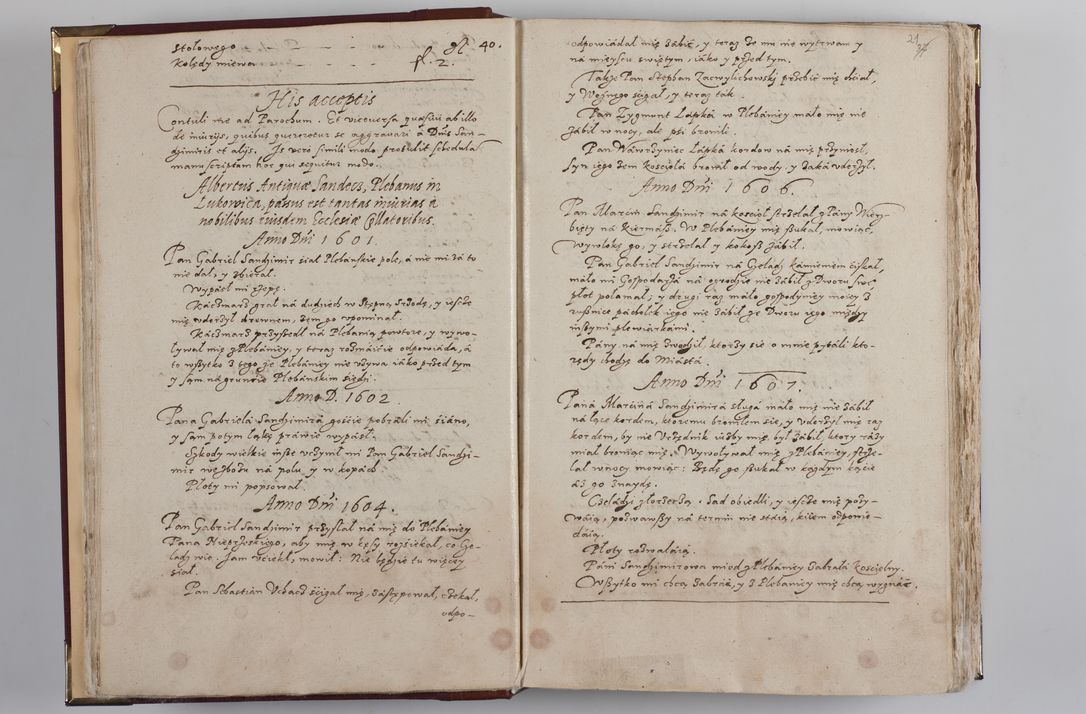 stolowego - - - gł. 40.
kolędy miewa - - - fl. 2.
His acceptis
Contuli me ad Parochum. Et viceversa quæsivi ab illo
de iniurijs, quibus quereretur se aggravari à Dnis San-
dzimiris et alijs. Js vero simili modo protulit schedulã
manuscriptam hoc qui sequitur modo.
Albertus Antiquæ Sandecz, Plebanus in
Lukowica, passus est tantas iniurias à
nobilibus eiusdem Ecclesiæ Collatoribus.
Anno Dñi 1601.
Pan Gabriel Sandzimir siał Plebańskie pole, á nie mi zá to
nie dał, y zbierał.
Wypásł mi
Káczmarz grał ná dudách w Stępną Srzodę, y ieszcze
mię vderzył drewnem, żem go vpominał.
Káczmarz przyszedł ná Plebanią powtore, y wywo-
ływał mię z Plebániey, y teraz rozmáićie odpowiáda, á
to wszytko z tego że Plebániey nie vżywa iáko przed tym
y sam ná grunćie Plebáńskim śiedzi.
Anno D. 1602.
Páná Gabrielá Sandzimirá gośćie pobráli mi śiáno,
y sam potym łąkę práwie wypásł.
Szkody wielkie insze vczynił mi Pan Gabriel Sandzi-
mir w zbożu ná polu, y w kopách.
Płoty mi popsował.
Anno Dñi 1604.
Pan Gabriel Sandzimir przysłał ná mię do Plebániey
Páná Nieprzeskiego, áby mię w kęsy rozśiekał, co Cze-
ladź wie. Jam vćiekł, mowił: Nie będzie tu więcey
śiał.
Pan Sebastian Vchacz śćigał mię, zástępował, czekał,
odpo-
21
odpowiádał mię zábić, y teraz że mu nie wytrwam y
ná mieyscu świętym, iáko y przed tym.
Także Pan Stephan Zacwylichowski przebić mię chćiał,
y Woźnego śćigał, y teraz ták.
Pan Zygmunt Łápká w Plebániey máło mię nie
zábił w nocy, ále pśi bronili.
Pan Wáwrzyniec Łápká kordow ná mię przyniosł,
Syn iego żem kośćiołá bronił od wody, y żaká vderzył.
Anno Dñi 1606.
Pan Marćin Sandzimir ná kośćioł strzelał z Pány Wierz-
bięty ná Kiermász. W Plebániey mię szukał, mowiąc,
wywlokę go, y strzelał y kokosz zábił.
Pan Gabriel Sandzimir ná Czeladź kámieniem ćiskał,
máło mi Gospodarzá ná ogrodzie nie zábił z Dworu swe(go)
płot połamał; y drugi raz máło gospodyniey moiey z
rusznice pácholek iego nie zábił ze Dworu iego między
inszymi plewiarkámi.
Pány ná mię zwodził, ktorzy sie o mnie pytáli kto-
rędy chodzę do Miástá.
Anno Dñi 1607.
Páná Marćiná Sandzimirá sługá máło mię nie zábił
ná łące kordem, ktoremu broniłem sie, y vderzył mię raz
kordem, by nie Vrzędnik iużby mię był zábił, ktory rázy
miał broniąc mię. Wywoływał mię z Plebániey, strze-
lał w nocy mowiąc: Będę go szukał w káżdym kąćie
áż go znaydę.
Czeladzi złorzeczą. Sad obiedli, y ieszcze mię pozy-
wáią, pozwawszy ná termin nie stáią, kiiem odpowie-
dáią.
Płoty rozwaláią.
Páni Sandzimirowa miod z Plebániey zábráłá kośćielny.
Wszytko mi chcą zábráć, y z Plebániey mię chcą wygnáć.